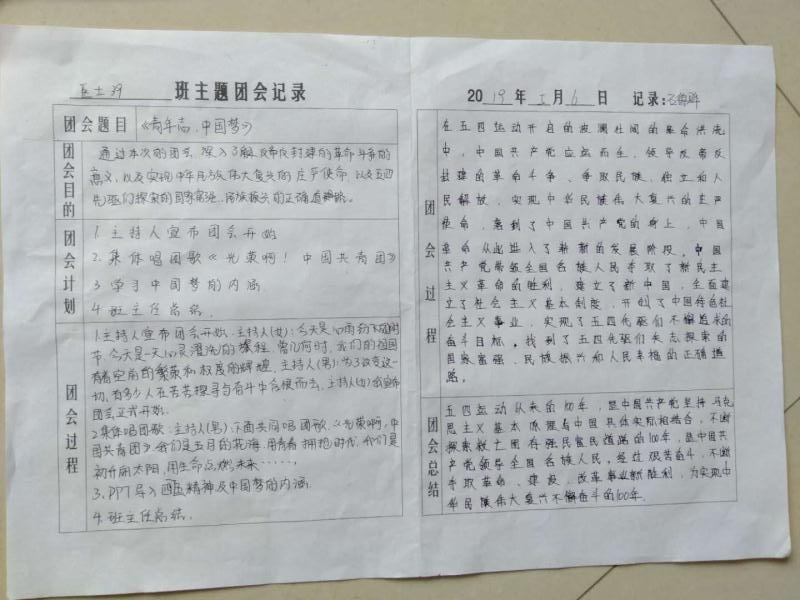 医士班 班主题团会记录
团会题目 《青年志,中国梦》
团会目的
通过本次的团会,深入了解反帝反封建的革命斗争的
意义,以及实现中华民族伟大复兴的庄严使命,以及五四
先驱们探索的国家富强、民族振兴的正确道路。
团会计划
1 主持人宣布团会开始
2. 集体唱团歌《光荣啊!中国共青团》
3 学习中国梦的内涵
4 班主任总结.
团会过程
1.主持人宣布团会开始、主持人(女):今天是
节,今天是一次心灵洗的旅程,曾几何时,我们的祖国
有着空前的繁荣和权度的辉煌,主持人(男):为了改变这一
切,有多少人在苦苦探寻与奋斗中含恨而去,主持人(女):我宣布
团会正式开始.
2.集体唱团歌:主持人(男):下面共同唱团歌《光荣啊,中
国共青团》我们是五月的花海,用青春拥抱时代,我们是
初升的太阳,用生命点燃未来……,
3.PPT导入精神及中国梦的内涵.
4.班主任总结.
2019年 5月6日 记录:
团会过程
在五四运动开启的波澜壮阔的革命洪流
中,中国共产党应运而生,领导反帝反
封建的革命斗争、争取民族、独立和人
民解放,实现中华民族伟大复兴的庄严
使命,落到了中国共产党的身上,中国
革命从此进入了崭新的发展阶段。中国
共产党带领全国各族人民夺取了新民主
主义革命的胜利,建立了新中国,全面建
立了社会主义基本制度,开创了中国特色社
会主义事业,实现了五四先驱们不懈追求的
奋斗目标。找到了五四先驱们矢志探索的
国家富强、民族振兴和人民幸福的正确道
路。
团会总结
五四运动以来的100年,是中国共产党坚持马克
思主义基本原理与中国具体实际相结合,不断
探索救亡图存强民富民道路的100年,是中国共
产党领导全国各族人民,经过艰苦奋斗,不断
夺取革命、建设、改革事业新胜利,为实现中
华民族伟大复兴不懈奋斗的100年.